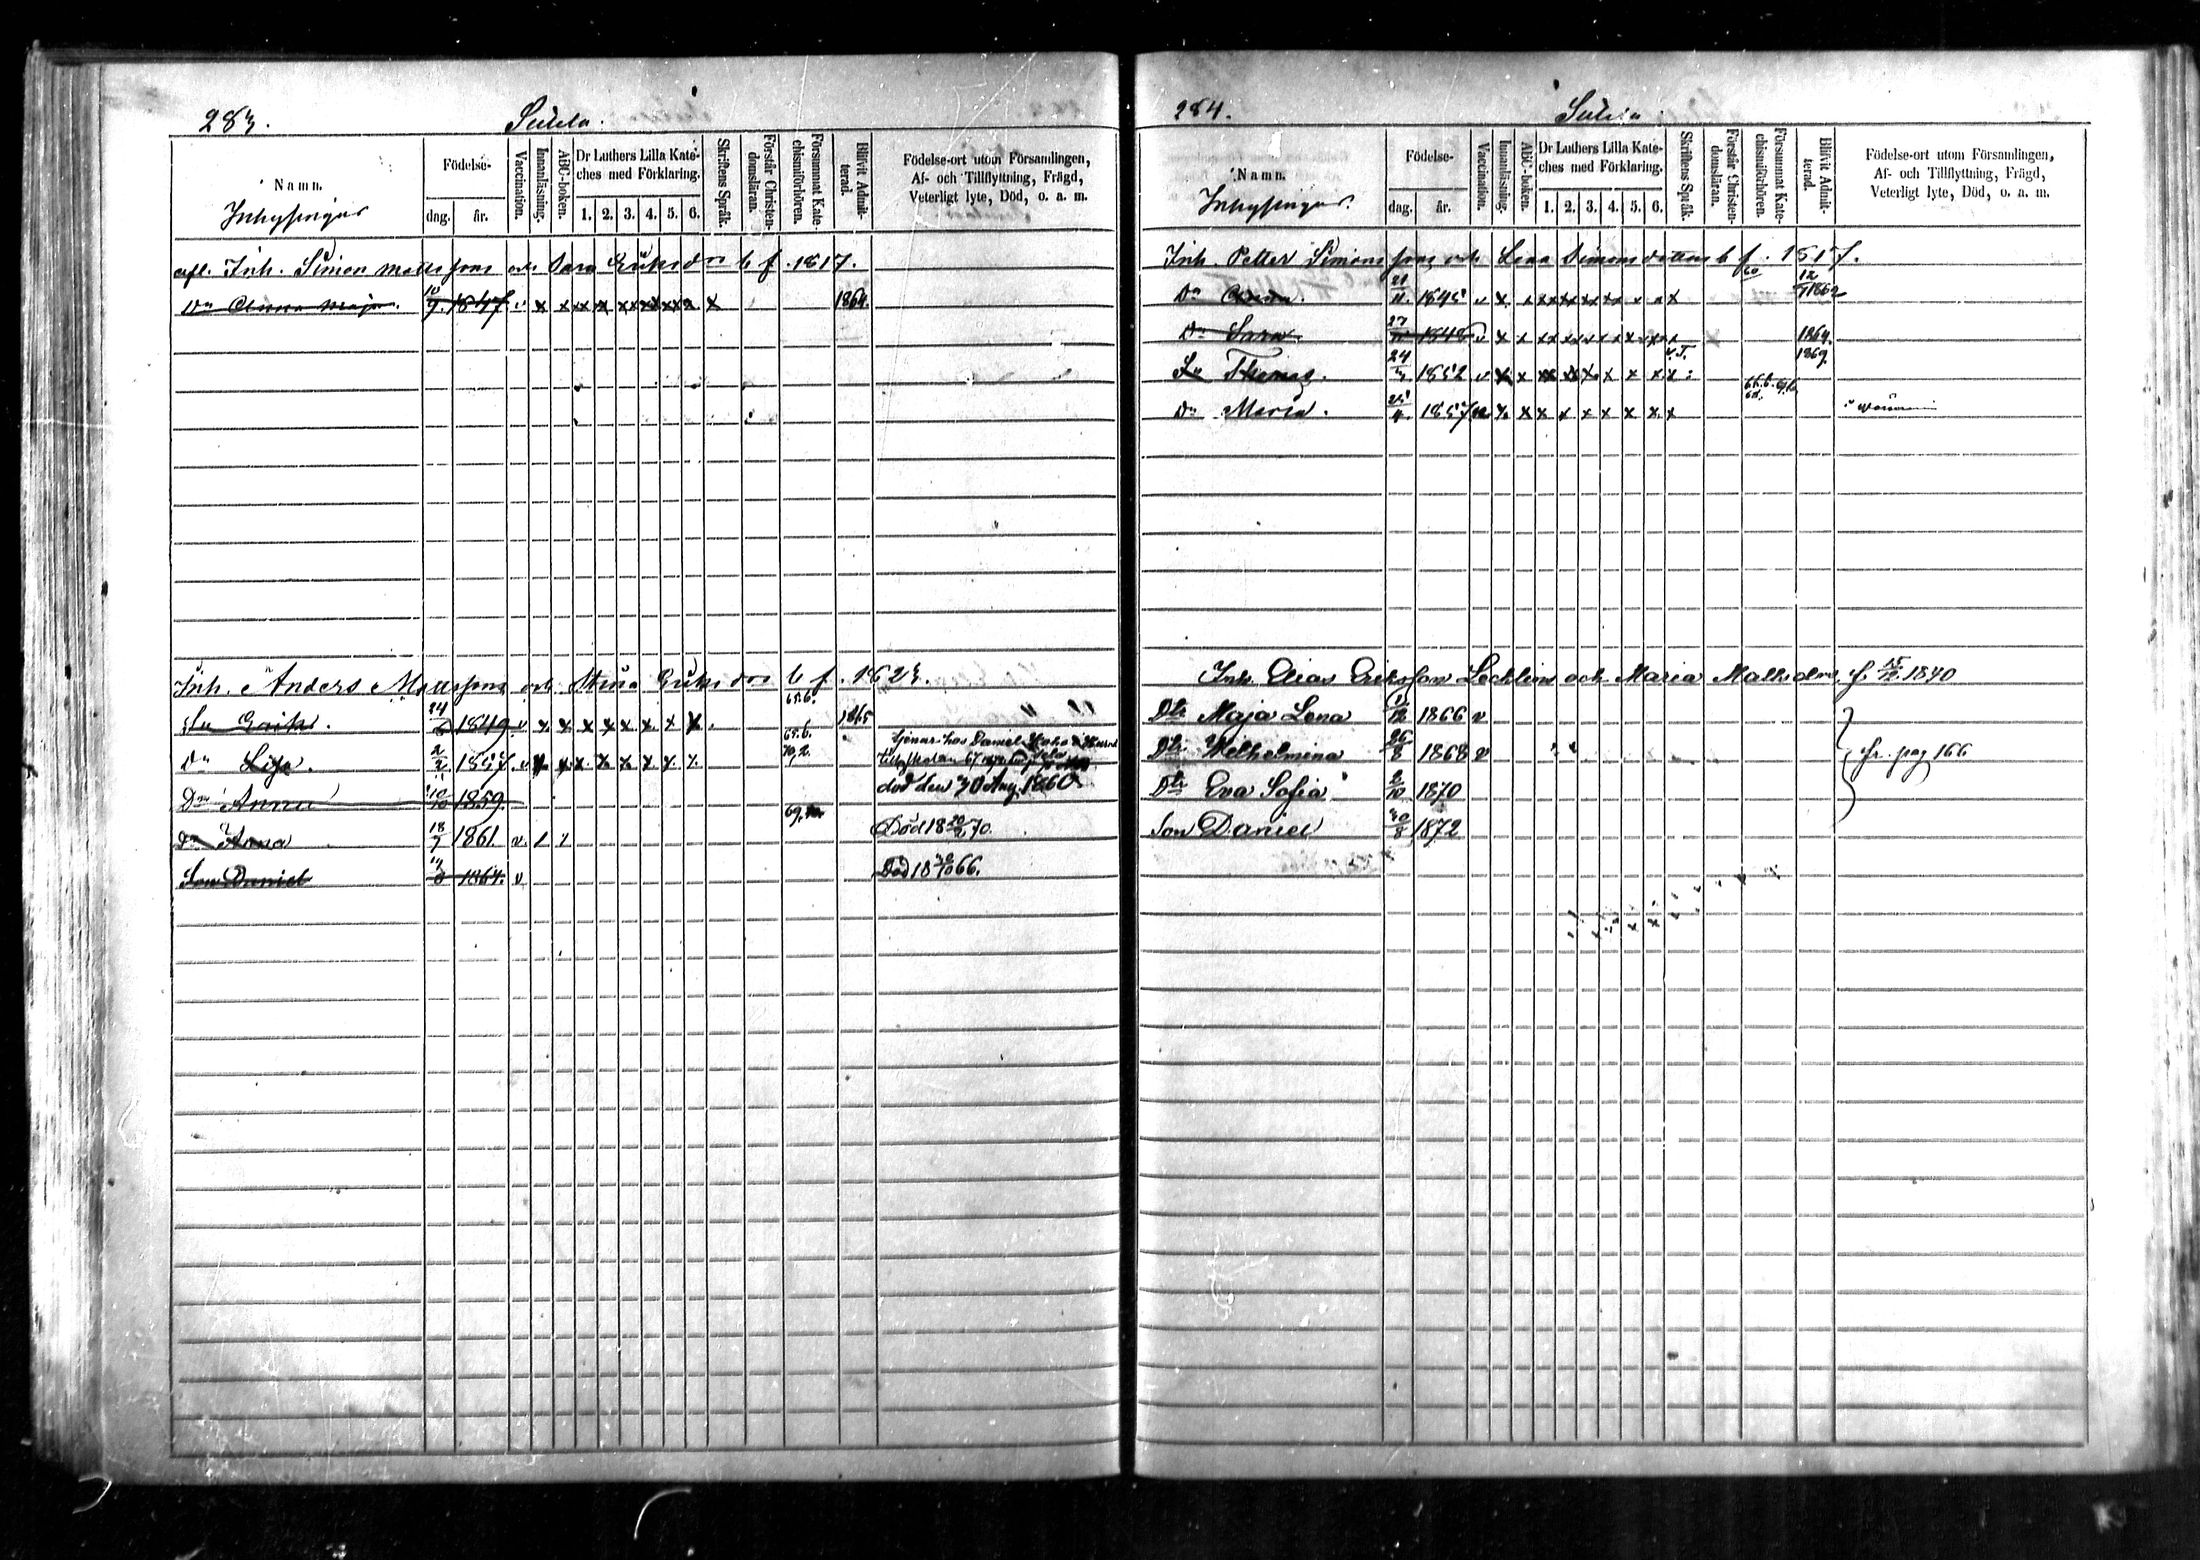 283.
Sulila.
Namn.
Inhysingar
Födelse-
dag. år.
Vaccination.
Innanläsning.
ABC-boken.
Dr Luthers Lilla Kate-
ches med Förklaring.
1. 2. 3. 4. 5. 6.
Skriftens Språk.
Förstår Christen-
domsläran.
Försummat Kate-
chismiförhören.
Blifvit Admit-
terad.
Födelse-ort utom Församlingen,
Af- och Tillflyttning, Frägd,
Veterligt lyte, Död, o. a. m.
afl. Inh. Simon Mattssons och Sara Eriksdrs b f. 1817.
Dr Anna Maja. 10/9 1847 v x x x x x x x x x x 1864.
Inh. Anders Mattssons och Stina Eriksdrs b f. 1823.
Sn Erik. 24/6 1849 v x x x x x x x x 65.6. 1865
Dr Lisa. 2/2 1857. v x x x x x x x x 65.6. 70,2. tjenar hos Daniel
Dr Anna 10/10 1859. död den 30 Aug. 1860
Dr Anna 18/7 1861 v. 1 1 69. Död 18 20/2 70.
Son Daniel 1864. v Död 18 30/10 66.
284.
Sulila
Namn.
Inhysingar.
Födelse-
dag. år.
Vaccination.
Innanläsning-
ABC-boken.
Dr Luthers Lilla Kate-
ches med Förklaring.
1. 2. 3. 4. 5. 6.
Skriftens Språk.
Förstår Christen-
domsläran.
Försummat Kate-
chismiförhören.
Blifvit Admit-
terad.
Födelse-ort utom Församlingen,
Af- och Tillflyttning, Frägd,
Veterligt lyte, Död, o. a. m.
Inh. Petter Simonssons och Lena Simonsdotters b f. 1817.
Dr Anna. 21/11 1845 v x x x x x x x x x 60 12/7 1862
Dr Sara 27/10 1848 v x x x x x x x x x x 1864.
Sn Thomas. 24/3 1852 v x x x x x x x x x v.T. 1869.
Dr Maria. 25/4 1857 x x x x x x x x x
Inh. Elias Eriksson Lecklins och Maria Matlsdrs f. 15/12 1840
Dtr Maja Lena 1/12 1866 v
Dtr Wilhelmina 26/8 1868 v fr. pag 166
Dtr Eva Sofia 2/10 1870
Son Daniel 30/8 1872